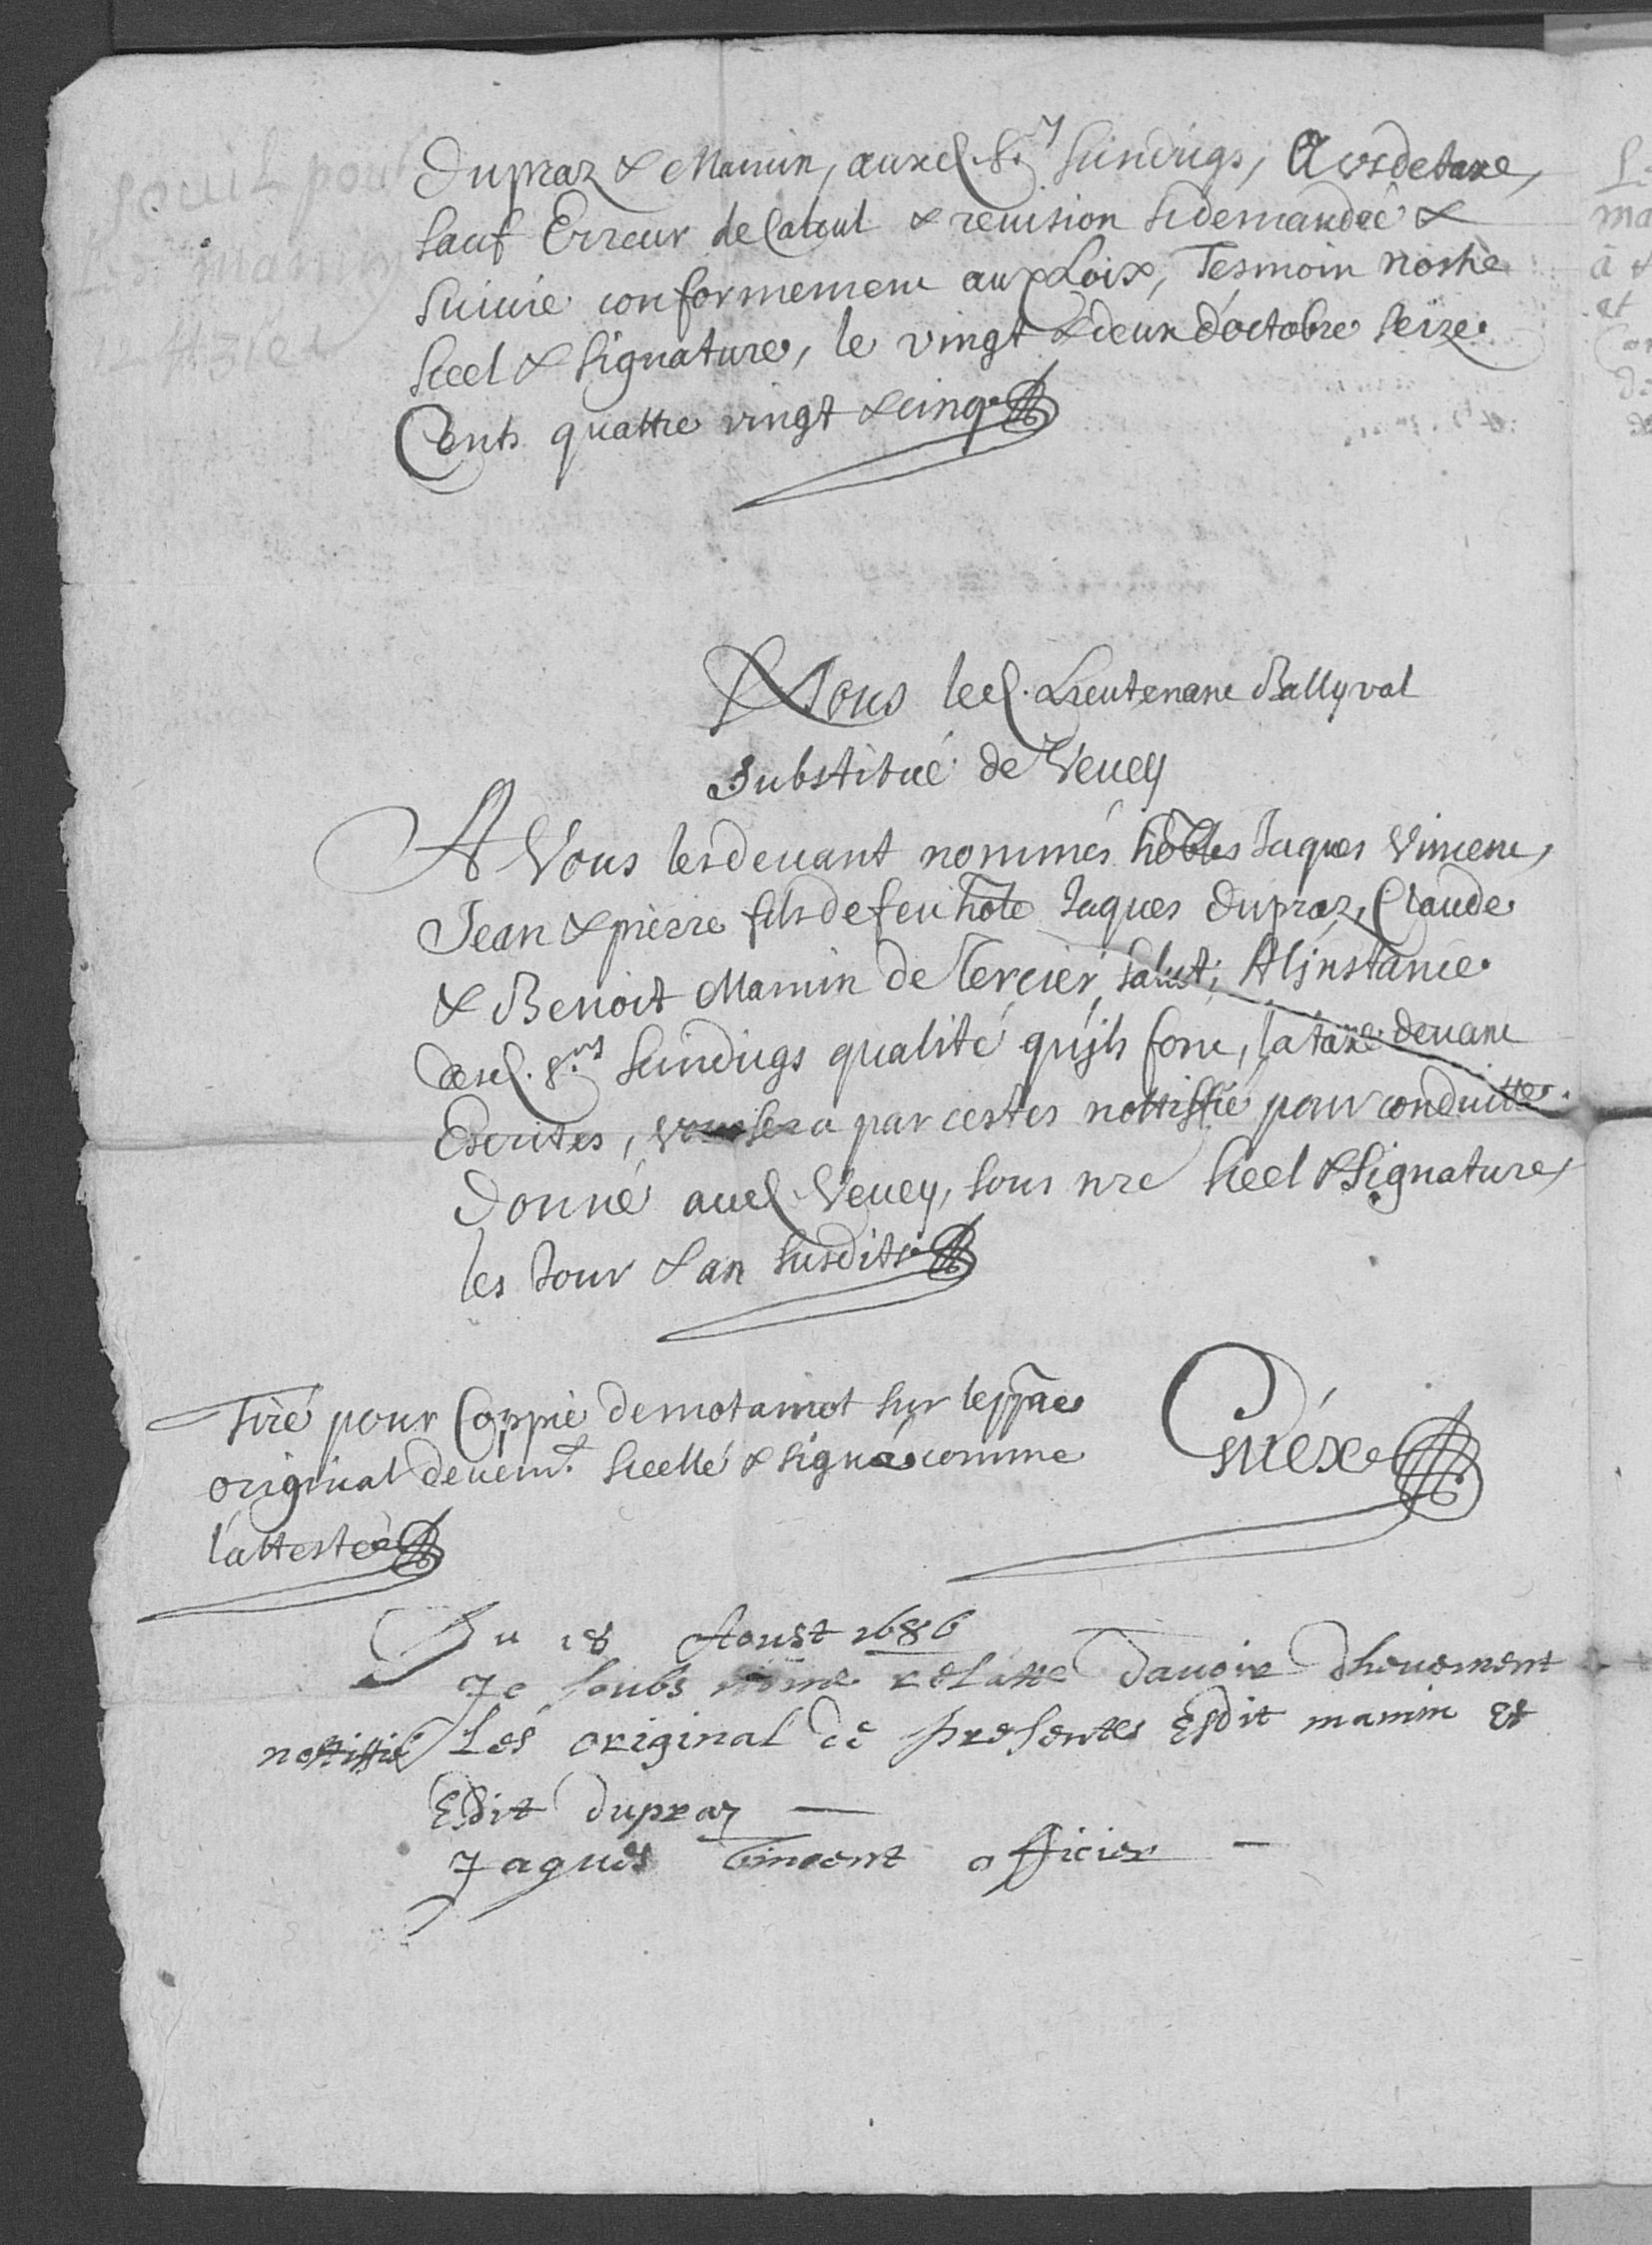 Dupraz & Mamin, auxd. Srs Scindiqs, A vs de taxe,
sauf Erreur de Calcul & reuision sidemandée &
suiuie conformement aux Loix, Tesmoin nostre
Sceel & signature, le vingt & deux d'octobre seize
Cents quattre vingt & cinq
Nous led. Lieutenant Ballyval
substitué de Veuey
A Vous les deuant nommés hobles Jaques Vincent,
Jean & pierre fils de feu hole Jaques Dupraz, Claude
& Benoit Mamin de Tercier, salut; A l'jnstance
desd. Srs Scindiqs qualité qu'jls font, la taxe deuant
Escrites, vous sera par cestes nottiffié pour conduitte.
Donné aud. Veuey, sous nre Sceel & Signature,
les Jour & an susdits
Tiré pour Coppie de mot a mot sur le ppre
original deuemt. sceellé & signé comme
l'atteste
Cuéxe
Du 18 Aoust 1686
Je soubs nomé relatte dauoir dheuement
nottiffié Les original de presentes Esdit mamin et
Esdit dupraz
Jaques Vincent officier